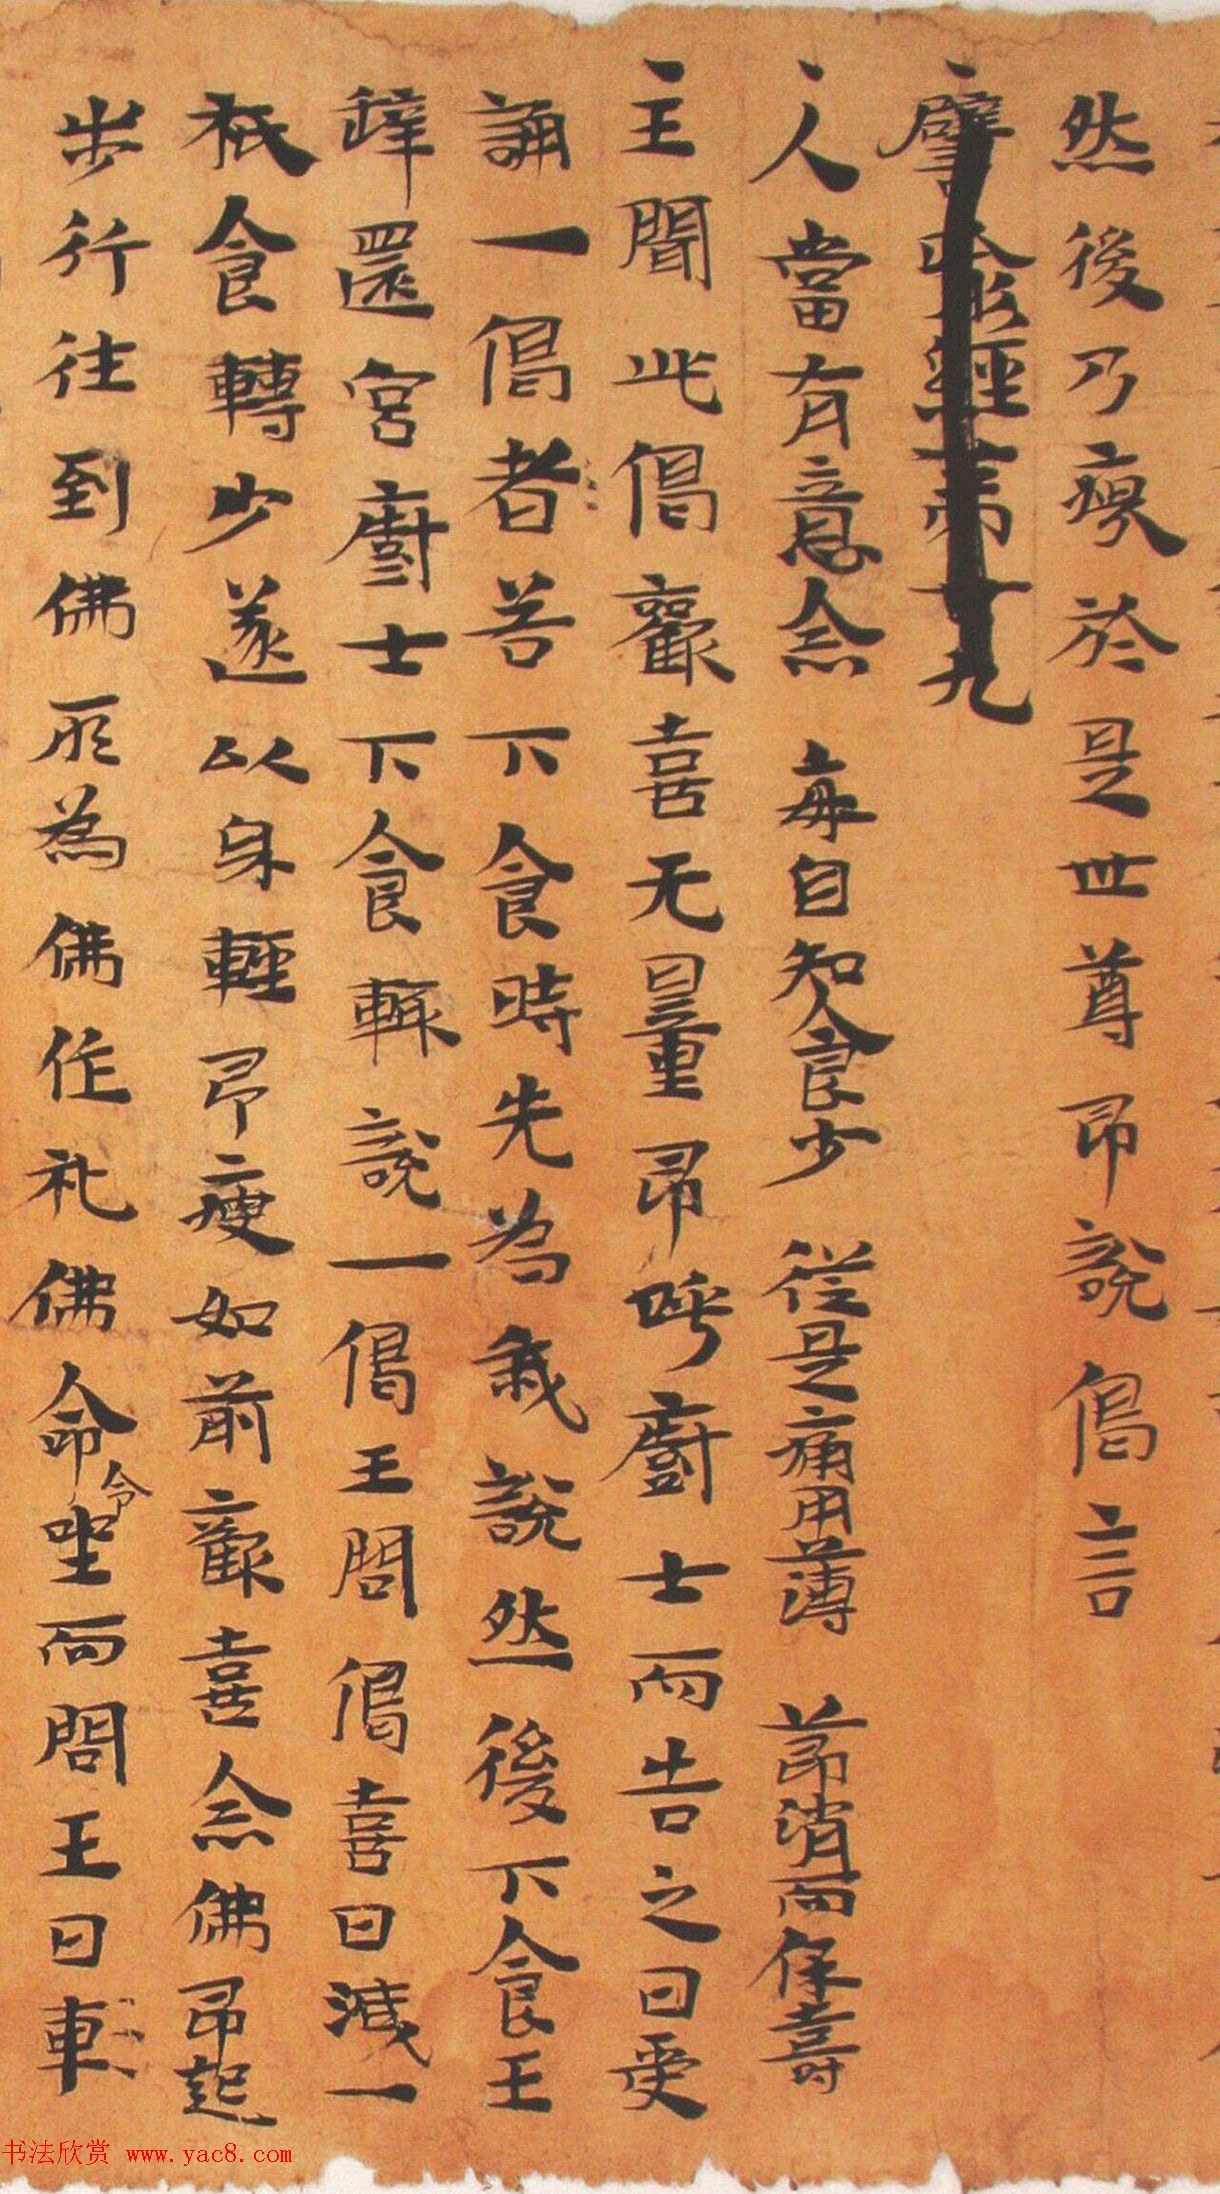 然後乃瘦於是世尊即說偈言
譬喻經第廿九
人當有意念 每自知食少 從是痛用薄 節消而保壽
王聞此偈歡喜无量即呼廚士而告之曰受
誦一偈者若下食時先為我說然後下食王
辭還宮廚士下食輒說一偈王問偈喜日減一
秖食轉少遂以身輕即瘦如前歡喜念佛即起
步行往到佛所為佛作礼佛命令坐而問王曰車
书法欣赏 www.yac8.com